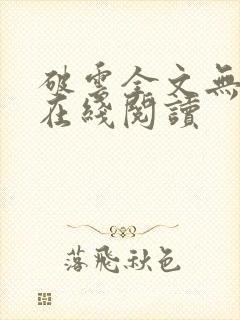 破雲全文無
在綫閱讀
落飛秋色